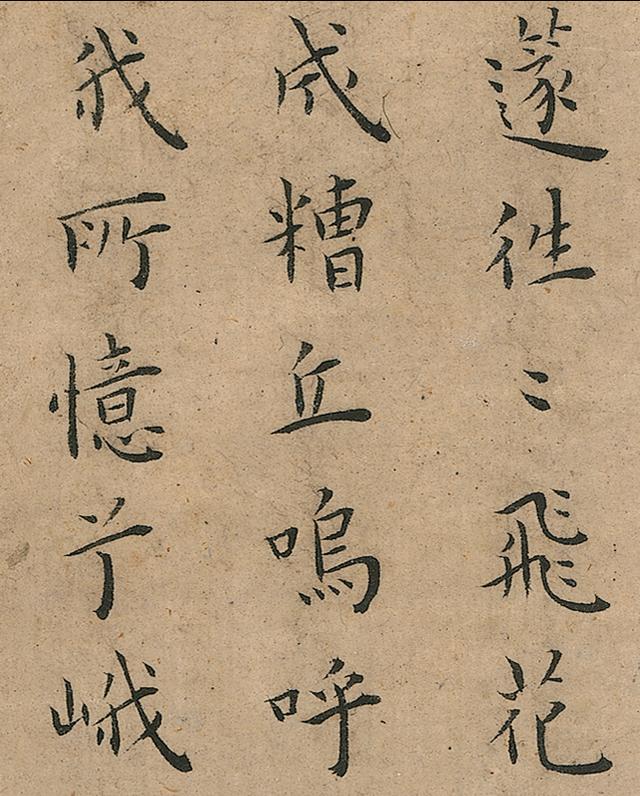 往〻飛花
成糟丘嗚呼
我所憶兮峨